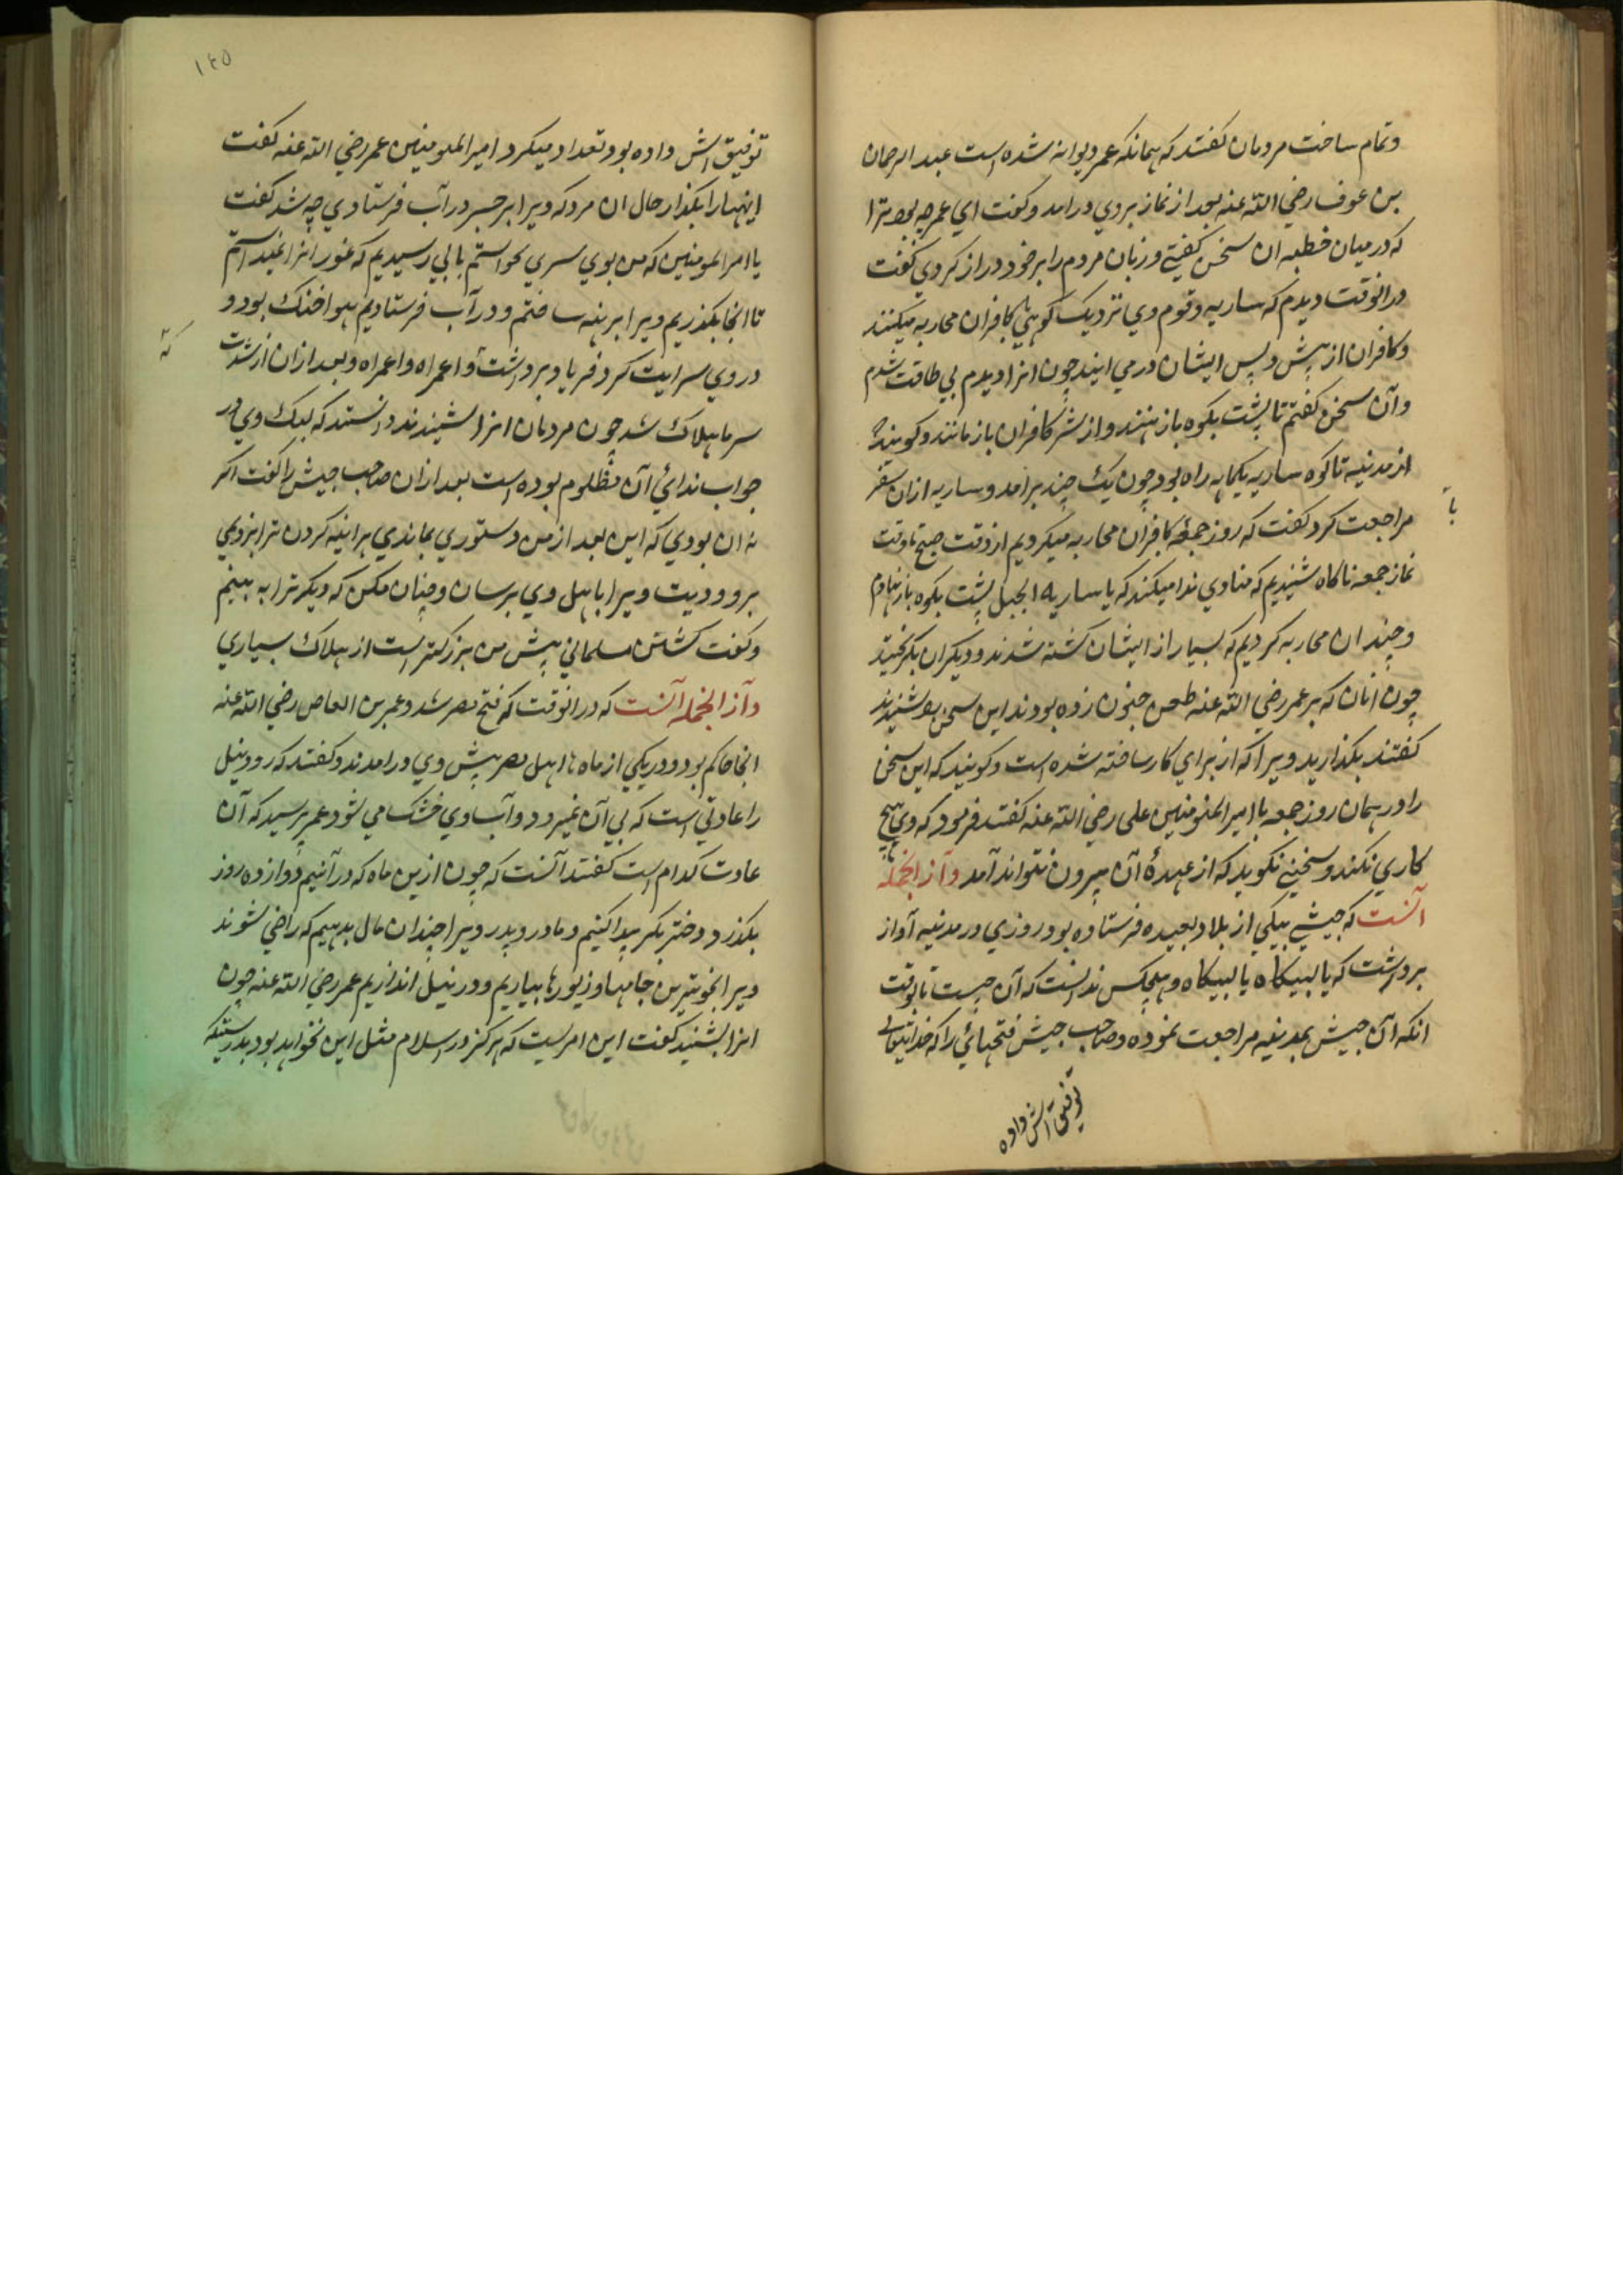 وتمام ساخت مردمان کفتند که همانکه عمر دیوانه شده است عبد الرحمان
بن عوف رضي الله عنه بعد از نماز بروي درامد و کفت اي عمر چه بود ترا
که در میان خطبه ان سخن کفتي و زبان مردم را بر خود دراز کردي کفت
در انوقت دیدم که ساریه وقوم وي نزدیک کوهي با کافران محاربه میکنند
وکافران از پیش و پس ایشان در مي ایند چون انرا دیدم بي طاقت شدم
وآن سخن کفتم تا پشت بکوه باز نهند و از شر کافران باز مانند و کویند
از مدینه تا کوه ساریه یکماهه راه بود چون یک چند برامد و ساریه ازان سفر
مراجعت کرد کفت که روز جمعه با کافران محاربه میکردیم از وقت صبح تا وقت
نماز جمعه ناکاه شنیدیم که منادي ندا میکند که یا ساریه الجبل پشت بکوه باز نهادم
وچندان محاربه کردیم که بسیار از ایشان کشته شدند و دیکران بکریختند
چون انان که بر عمر رضي الله عنه طعن جنون زده بودند این سخن شنیدند
کفتند بکذارید ویرا که از براي کار ساخته شده است و کویند که این سخن
را در همان روز جمعه با امیر المؤمنین علی رضي الله عنه کفتند فرمود که وي هیچ
کاري نکند و سخني نکوید که از عهدهٔ آن بیرون نتواند آمد وآز انجمله
آنست که جیشي بیکي از بلاد بعیده فرستاده بود روزي در مدینه آواز
برداشت که یا لبیکاه یا لبیکاه و هیچکس ندانست که آن چیست تا بوقت
انکه آن جیش بمدینه مراجعت نموده و صاحب جیش فتحهائي را که خدایتعالی
توفیق آش داده
۱۴۵
توفیق اش داده بود تعداد میکرد امیر المومنین عمر رضي الله عنه کفت
اینهارا بکذار حال ان مرد که ویرا بر جسر در آب فرستادي چه شد کفت
یا امیر المومنین که من بوي سري نخواستم بابي رسیدیم که غور انرا نمیدانستم
تا انجا بکذریم ویرا برهنه ساختم و در آب فرستادیم هوا خنک بود و
در وي سرایت کرد فریاد برداشت وا عمراه وا عمراه و بعد ازان از شدت
سرما هلاک شد چون مردمان انرا شنیدند دانستند که لبیک وي در
جواب ندائي آن مظلوم بوده است بعد ازان صاحب جیش را کفت اکر
نه ان بودي که این بعد از من دستوري بماندي هر اینه کردن ترا بزدمي
برو و دیت ویرا باهل وي برسان و چنان مکن که دیکر ترا به بینم
وکفت کشتن مسلماني پیش من بزرکتر است از هلاک بسیاري
وآز انجمله آنست که در انوقت که فتح مصر شد و عمر بن العاص رضي الله عنه
انجا حاکم بود و در یکي از ماه ها اهل مصر پیش وي در امدند و کفتند که رود نیل
را عادتي است که بي آن نمیرود و آب وي خشک مي شود عمر پرسید که آن
عادت کدام است کفتند آنست که چون ازین ماه که در آنیم دوازده روز
بکذرد دختر بکر پیدا کنیم و مادر و پدر ویرا چندان مال بدهیم که راضي شوند
ویرا بخوبترین جامها و زیورها بیاریم و در نیل اندازیم عمر رضي الله عنه چون
انرا بشنید کفت این امریست که هرکز در اسلام مثل این نخواهد بود بدرستیکه